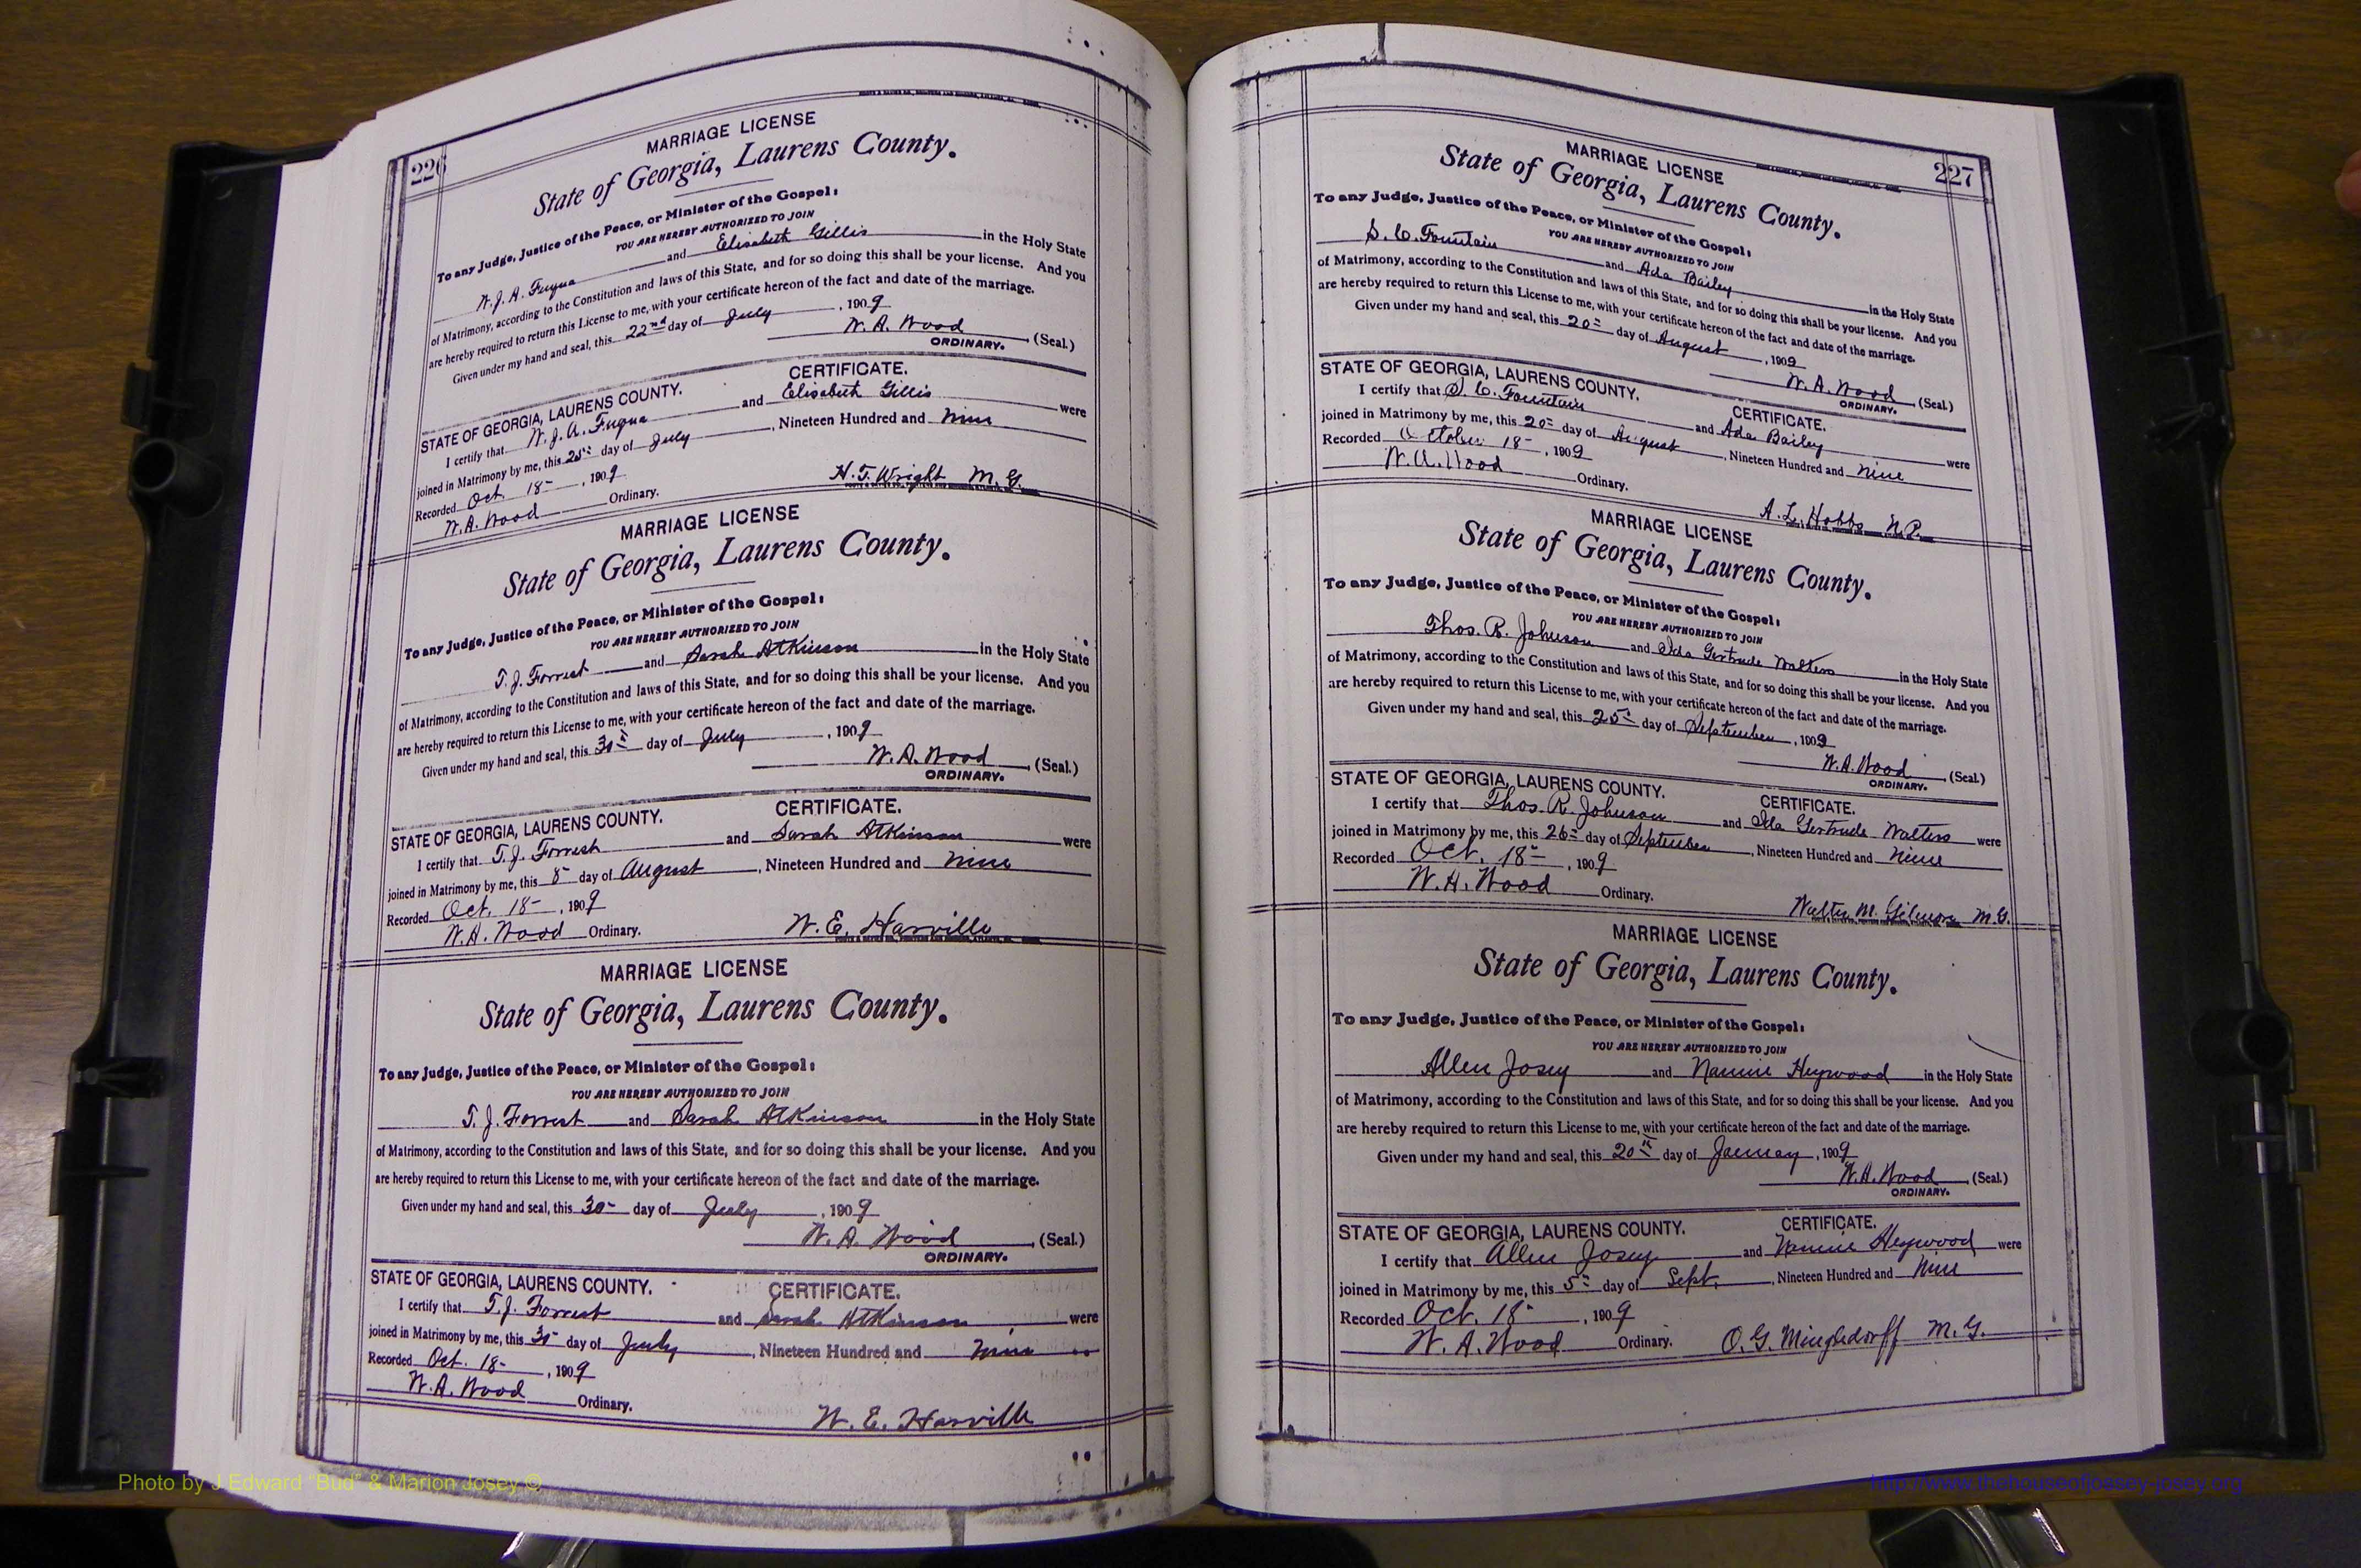 226
MARRIAGE LICENSE
State of Georgia, Laurens County.
To any Judge, Justice of the Peace, or Minister of the Gospel:
YOU ARE HEREBY AUTHORIZED TO JOIN
W. J. A. Fuqua and Elisabeth Gillis in the Holy State
of Matrimony, according to the Constitution and laws of this State, and for so doing this shall be your license. And you
are hereby required to return this License to me, with your certificate hereon of the fact and date of the marriage.
Given under my hand and seal, this 22nd day of July, 1909
W. A. Wood (Seal.)
ORDINARY.
CERTIFICATE.
STATE OF GEORGIA, LAURENS COUNTY.
I certify that W. J. A. Fuqua and Elisabeth Gillis were
joined in Matrimony by me, this 25th day of July, Nineteen Hundred and Nine
Recorded Oct. 18-, 1909
W. A. Wood Ordinary.
H. T. Wright M. G.
MARRIAGE LICENSE
State of Georgia, Laurens County.
To any Judge, Justice of the Peace, or Minister of the Gospel:
YOU ARE HEREBY AUTHORIZED TO JOIN
T. J. Forrest and Sarah Atkinson in the Holy State
of Matrimony, according to the Constitution and laws of this State, and for so doing this shall be your license. And you
are hereby required to return this License to me, with your certificate hereon of the fact and date of the marriage.
Given under my hand and seal, this 30th day of July, 1909
W. A. Wood (Seal.)
ORDINARY.
CERTIFICATE.
STATE OF GEORGIA, LAURENS COUNTY.
I certify that T. J. Forrest and Sarah Atkinson were
joined in Matrimony by me, this 8- day of August, Nineteen Hundred and Nine
Recorded Oct. 18-, 1909
W. A. Wood Ordinary.
W. E. Harville
MARRIAGE LICENSE
State of Georgia, Laurens County.
To any Judge, Justice of the Peace, or Minister of the Gospel:
YOU ARE HEREBY AUTHORIZED TO JOIN
T. J. Forrest and Sarah Atkinson in the Holy State
of Matrimony, according to the Constitution and laws of this State, and for so doing this shall be your license. And you
are hereby required to return this License to me, with your certificate hereon of the fact and date of the marriage.
Given under my hand and seal, this 30- day of July, 1909
W. A. Wood (Seal.)
ORDINARY.
STATE OF GEORGIA, LAURENS COUNTY. CERTIFICATE.
I certify that T. J. Forrest and Sarah Atkinson were
joined in Matrimony by me, this 30- day of July, Nineteen Hundred and Nine
Recorded Oct. 18-, 1909
W. A. Wood Ordinary.
W. E. Harville
227
MARRIAGE LICENSE
State of Georgia, Laurens County.
To any Judge, Justice of the Peace, or Minister of the Gospel:
YOU ARE HEREBY AUTHORIZED TO JOIN
S. C. Fountain and Ada Bailey in the Holy State
of Matrimony, according to the Constitution and laws of this State, and for so doing this shall be your license. And you
are hereby required to return this License to me, with your certificate hereon of the fact and date of the marriage.
Given under my hand and seal, this 20- day of August, 1909
W. A. Wood (Seal.)
ORDINARY.
STATE OF GEORGIA, LAURENS COUNTY. CERTIFICATE.
I certify that S. C. Fountain and Ada Bailey were
joined in Matrimony by me, this 20- day of August, Nineteen Hundred and Nine
Recorded October 18-, 1909
W. A. Wood Ordinary.
A. L. Hobbs N. P.
MARRIAGE LICENSE
State of Georgia, Laurens County.
To any Judge, Justice of the Peace, or Minister of the Gospel:
YOU ARE HEREBY AUTHORIZED TO JOIN
Thos. R. Johnson and Ida Gertrude Walters in the Holy State
of Matrimony, according to the Constitution and laws of this State, and for so doing this shall be your license. And you
are hereby required to return this License to me, with your certificate hereon of the fact and date of the marriage.
Given under my hand and seal, this 25th day of September, 1909
W. A. Wood (Seal.)
ORDINARY.
STATE OF GEORGIA, LAURENS COUNTY. CERTIFICATE.
I certify that Thos. R. Johnson and Ida Gertrude Walters were
joined in Matrimony by me, this 26th day of September, Nineteen Hundred and Nine
Recorded Oct. 18-, 1909
W. A. Wood Ordinary.
Walter M. Gilmore M. G.
MARRIAGE LICENSE
State of Georgia, Laurens County.
To any Judge, Justice of the Peace, or Minister of the Gospel:
YOU ARE HEREBY AUTHORIZED TO JOIN
Allen Josey and Nannie Heywood in the Holy State
of Matrimony, according to the Constitution and laws of this State, and for so doing this shall be your license. And you
are hereby required to return this License to me, with your certificate hereon of the fact and date of the marriage.
Given under my hand and seal, this 20th day of January, 1909
W. A. Wood (Seal.)
ORDINARY.
STATE OF GEORGIA, LAURENS COUNTY. CERTIFICATE.
I certify that Allen Josey and Nannie Heywood were
joined in Matrimony by me, this 5th day of Sept., Nineteen Hundred and Nine
Recorded Oct. 18-, 1909
W. A. Wood Ordinary. O. G. Mingledorff M. G.
Photo by J Edward "Bud" & Marion Josey ©
http://www.thehouseofjossey-josey.org